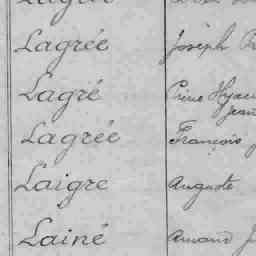 Lagrée Joseph
Lagré Pierre Hyac
Jean
Lagrée François J
Laigre Auguste
Lainé Armand J